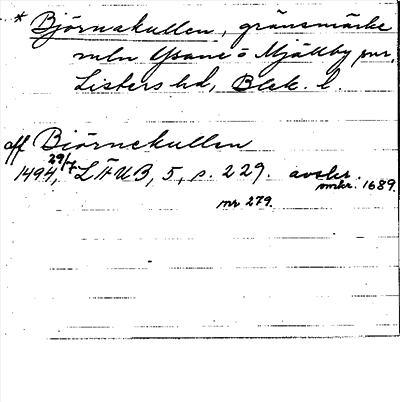 * Björnakullen, gränsmärke
mln Ysane o Mjällby snr,
Listers hd, Blek. l.
aff Biörnekullen
1494 29/7, LÄUB, 5, s. 229. avskr. omkr. 1689.
nr 279.